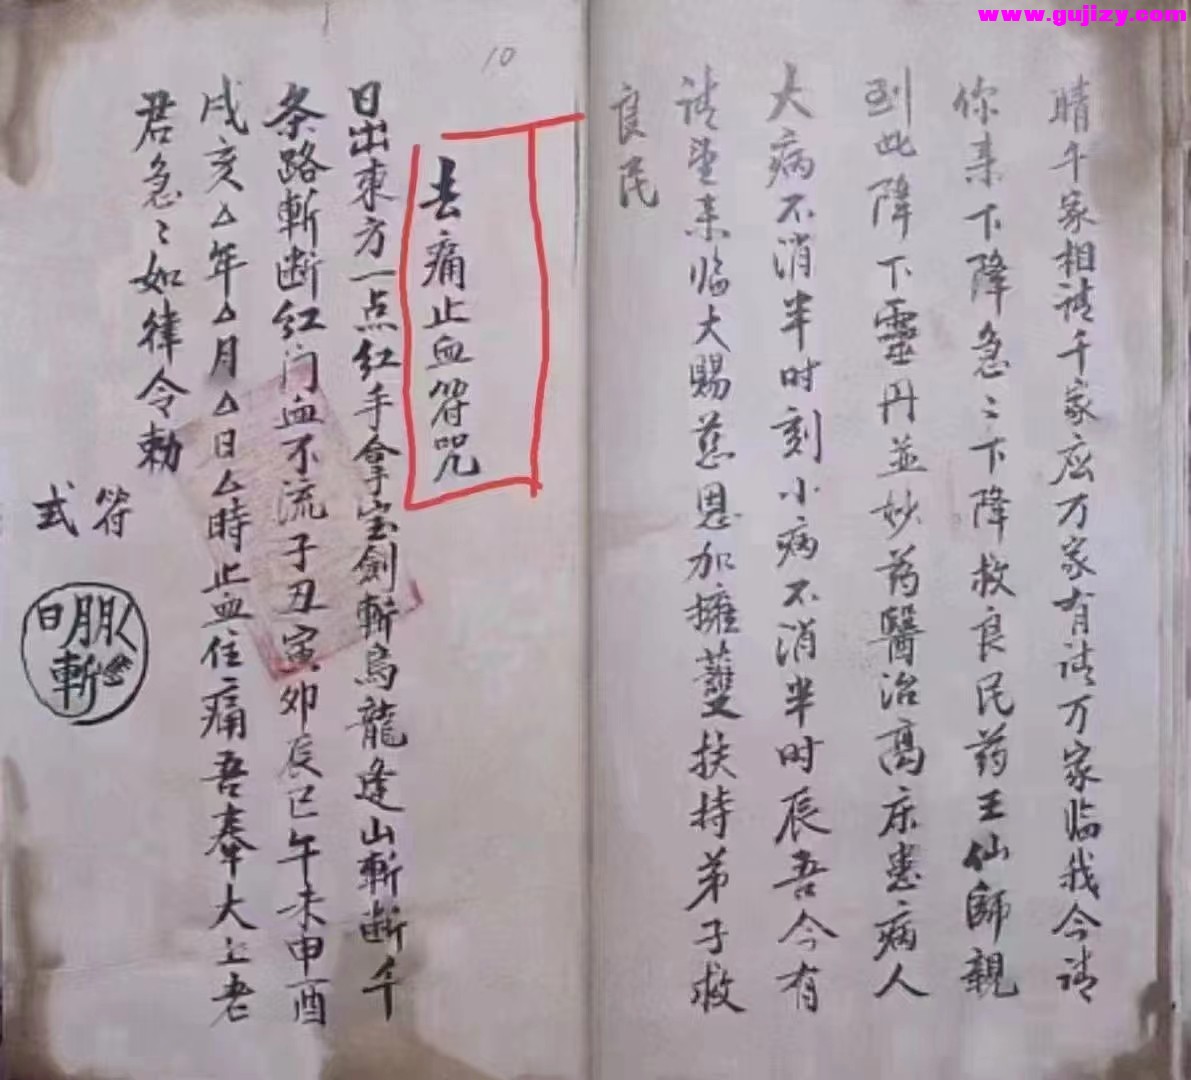 www.gujizy.com
晴千家相請千家应万家有請万家临我今請
你来下降急〻下降救良民药王仙師親
到此降下靈丹並妙药醫治离床患病人
大病不消半时刻小病不消半时辰吾今有
請望来临大賜慈恩加擁護扶持弟子救
良民
10
去痛止血符咒
日出東方一点红手拿宝劍斬烏龍逢山斬断千
条路斬断红门血不流子丑寅卯辰巳午未申酉
戌亥△年△月△日△時止血住痛吾奉太上老
君急〻如律令勅
符
式
日朋
斬